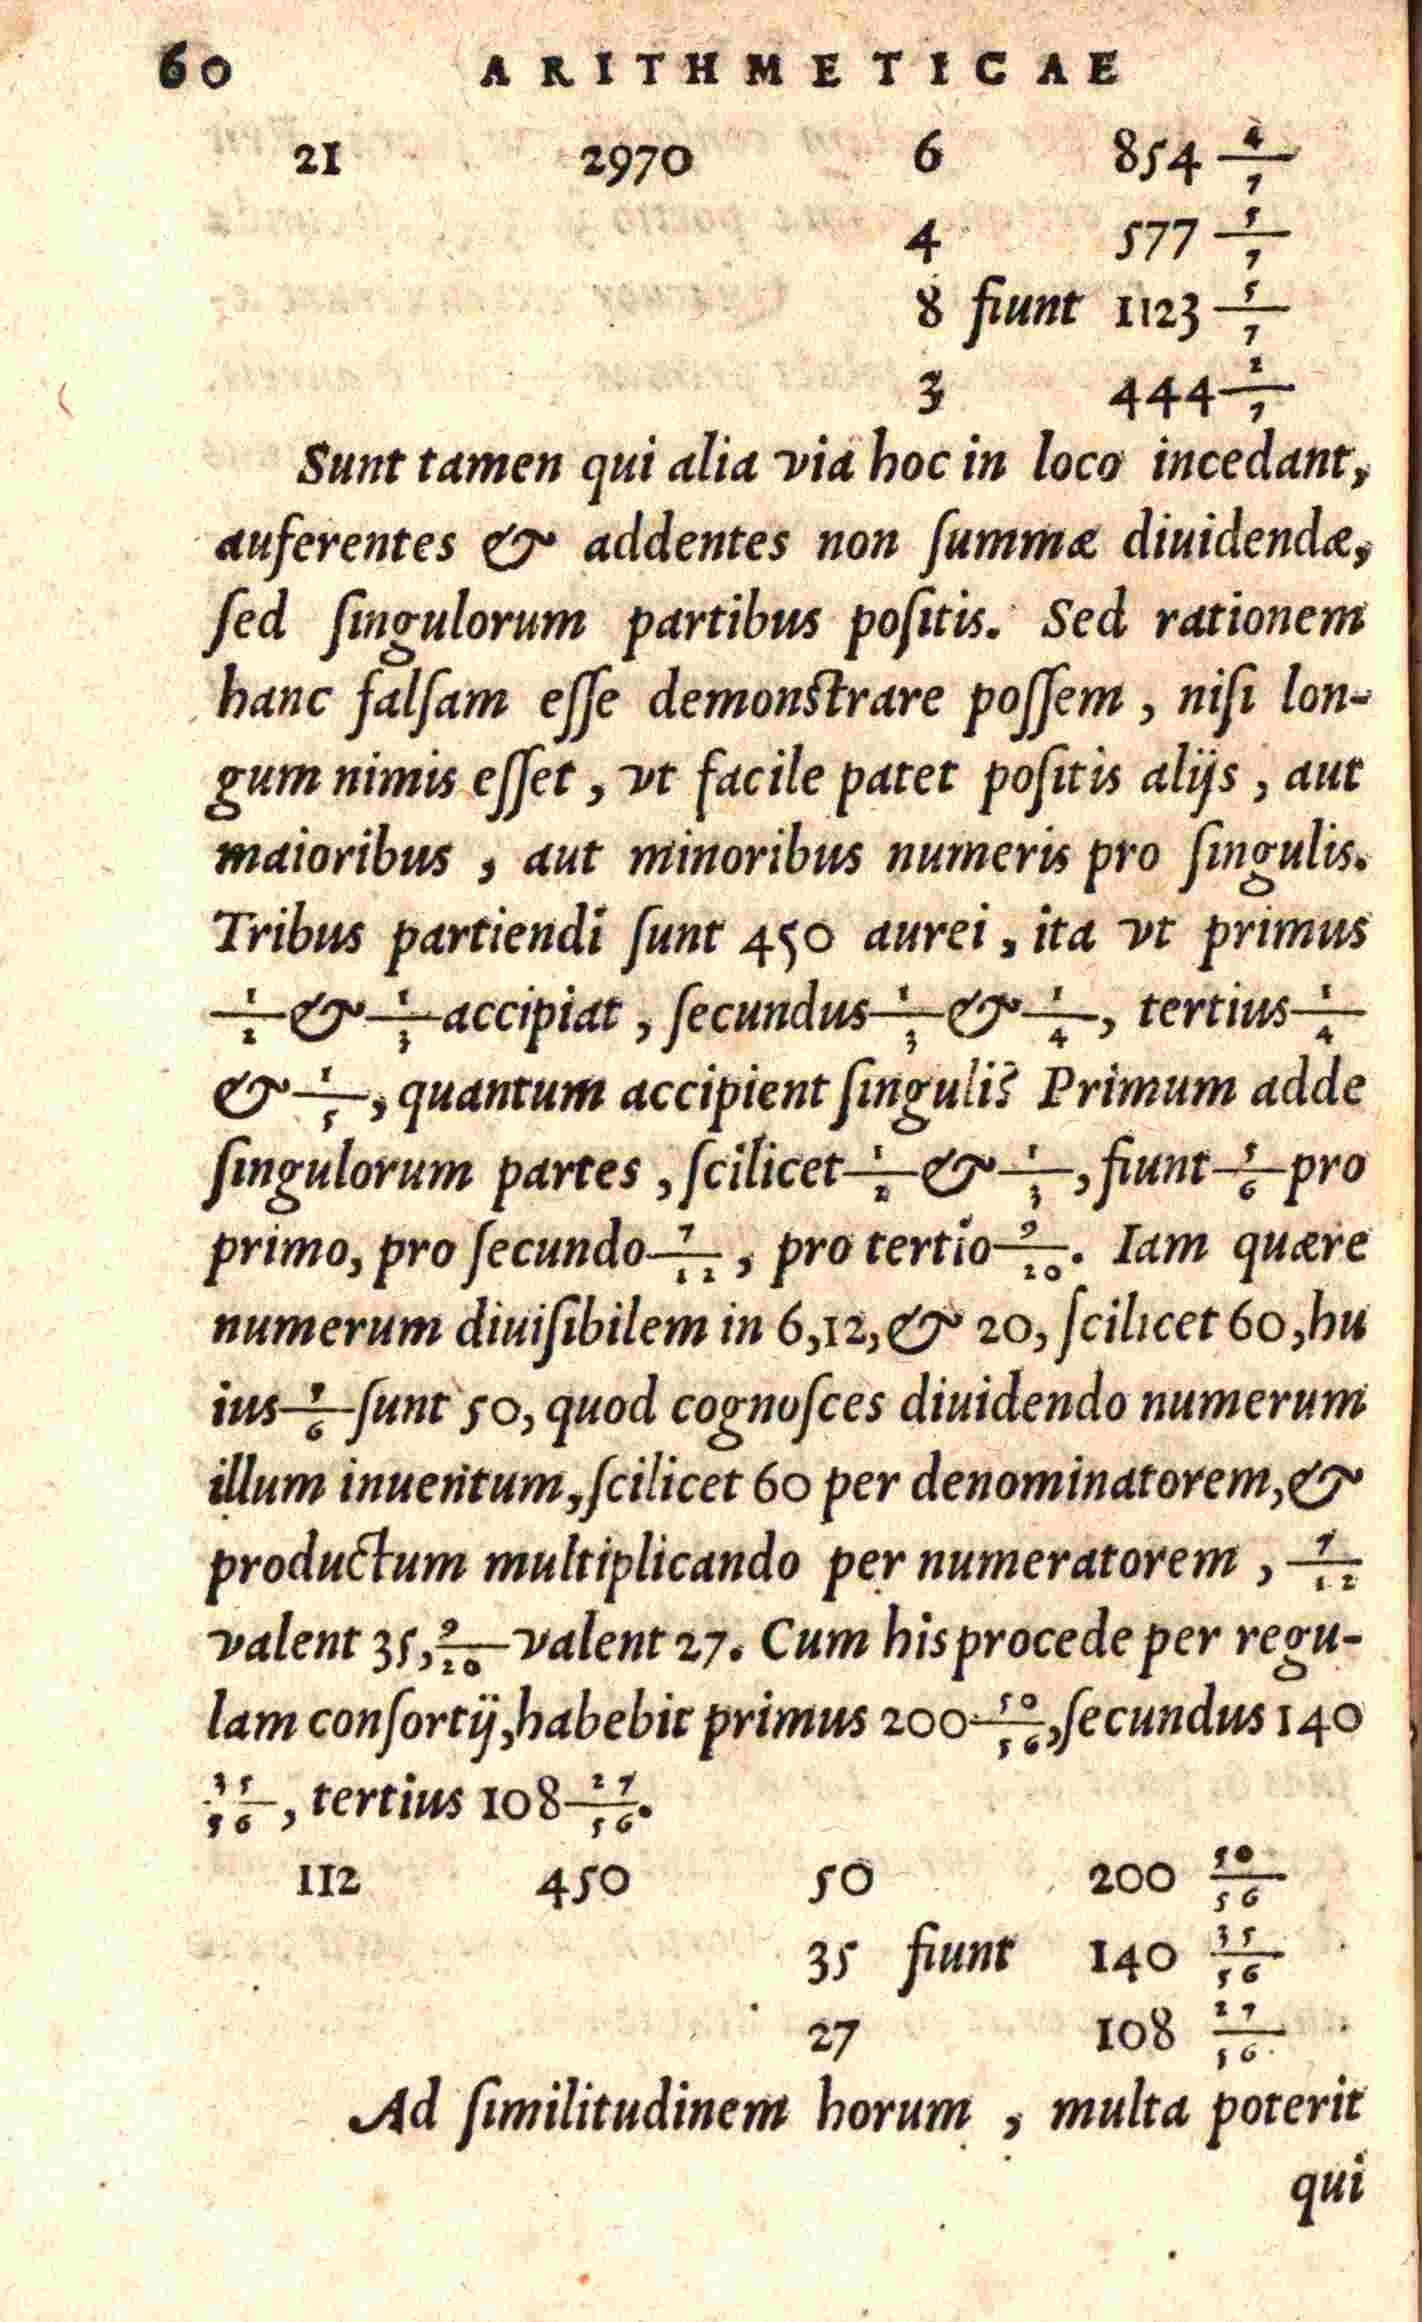 60 ARITHMETICAE
21 2970 6 854 4/7
4 577 5/7
8 fiunt 1123 5/7
3 444 2/7
Sunt tamen qui alia via hoc in loco incedant,
auferentes & addentes non ſummæ diuidendæ,
ſed ſingulorum partibus poſitis. Sed rationem
hanc falſam eſſe demonſtrare poſſem, niſi lon-
gum nimis eſſet, vt facile patet poſitis alijs, aut
maioribus, aut minoribus numeris pro ſingulis.
Tribus partiendi ſunt 450 aurei, ita vt primus
1/2 & 1/3 accipiat, ſecundus 1/3 & 1/4, tertius 1/4
& 1/5, quantum accipient ſinguli? Primum adde
ſingulorum partes, ſcilicet 1/2 & 1/3, fiunt 5/6 pro
primo, pro ſecundo 7/12, pro tertio 9/20. Iam quære
numerum diuiſibilem in 6,12,& 20, ſcilicet 60, hu
ius 5/6 ſunt 50, quod cognoſces diuidendo numerum
illum inuentum, ſcilicet 60 per denominatorem, &
productum multiplicando per numeratorem, 7/12
valent 35, 9/20 valent 27. Cum his procede per regu-
lam conſortij, habebit primus 200 50/56, ſecundus 140
35/56, tertius 108 27/56.
112 450 50 200 50/56
35 fiunt 140 35/56
27 108 27/56
Ad ſimilitudinem horum, multa poterit
qui